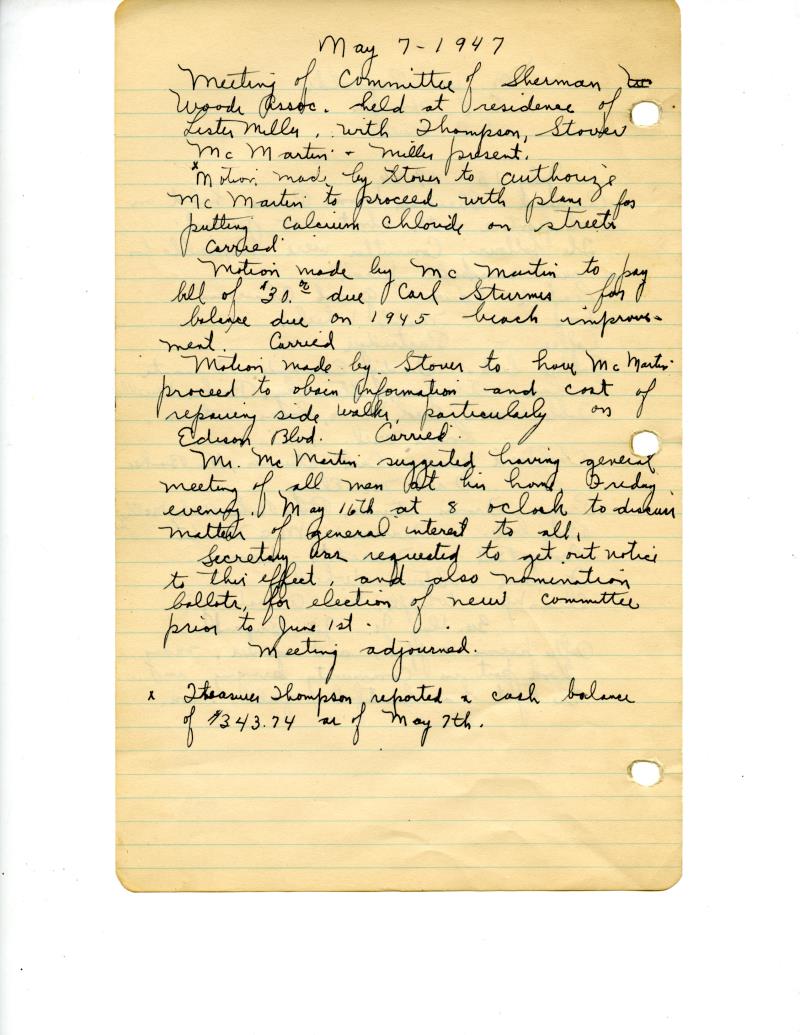 May 7-1947
Meeting of Committee of Sherman
Woods Assoc. held at residence of
Lester Miller, with Thompson, Stover
McMartin + Miller present.
x Motion made by Stover to authorize
McMartin to proceed with plans for
putting calcium chloride on streets
Carried
Motion made by McMartin to pay
bill of $30.00 due Carl Sturmer for
balance due on 1945 beach improve-
ment. Carried
Motion made by Stover to have McMartin
proceed to obain information and cost of
repairing side walks, particularly on
Edison Blvd. Carried.
Mr. McMartin suggested having general
meeting of all men at his home, Friday
evening, May 16th at 8 oclock to discuss
matters of general interest to all.
Secretary was requested to get out notice
to this effect, and also nomination
ballots, for election of new committee
prior to June 1st.
Meeting adjourned.
x Treasurer Thompson reported a cash balance
of $343.74 as of May 7th.